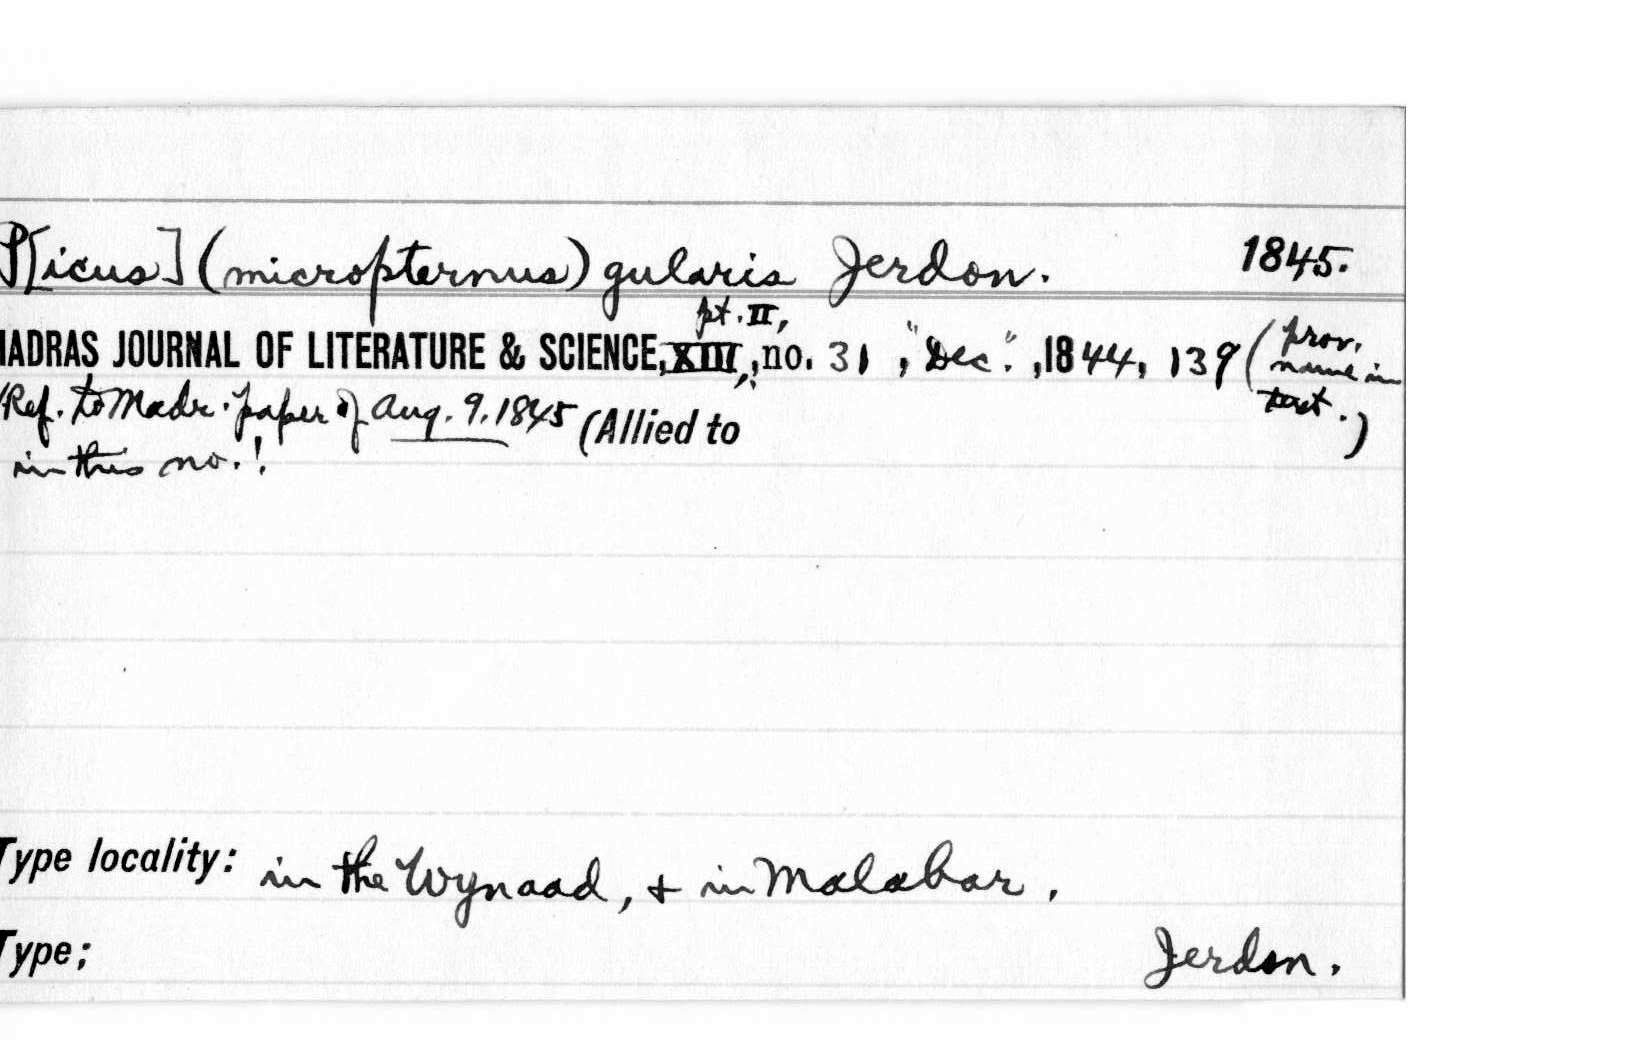 P[icus] (micropternus) gularis Jerdon. 1845.
pt. II,
MADRAS JOURNAL OF LITERATURE & SCIENCE, XIII, no. 31, "Dec.", 1844, 139 (prov.
name in
text.)
Ref. to Madr. paper of Aug. 9. 1845 (Allied to
in this no.!
Type locality: in the Wynaad, & in Malabar.
Type; Jerdon.